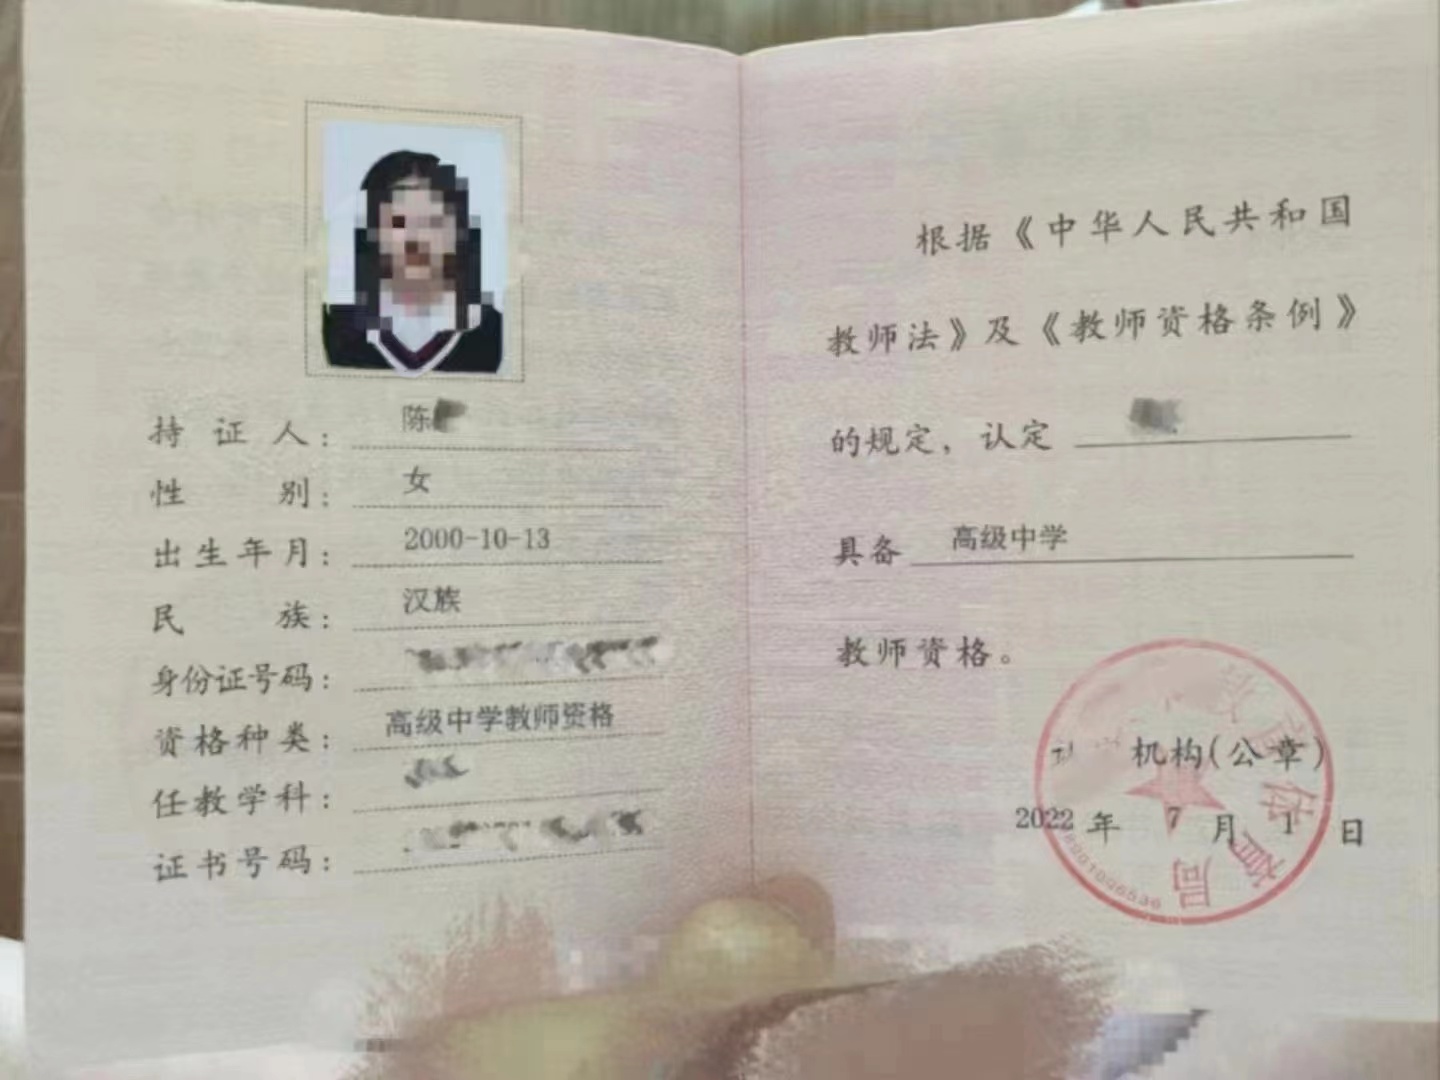 持证人：陈
性别：女
出生年月：2000-10-13
民族：汉族
身份证号码：
资格种类：高级中学教师资格
任教学科：
证书号码：
根据《中华人民共和国
教师法》及《教师资格条例》
的规定，认定
具备 高级中学
教师资格。
机构(公章)
2022 年 7 月 1 日
教育体育局